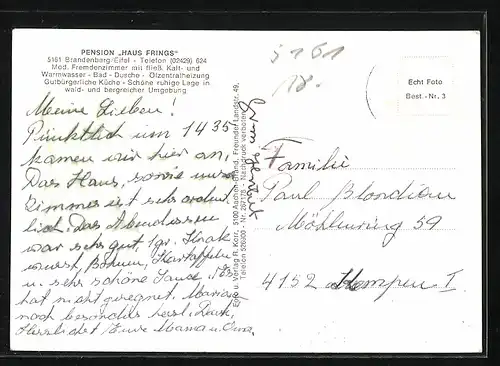 PENSION „HAUS FRINGS"
5161 Brandenberg/Eifel - Telefon (02429) 624
Mod. Fremdenzimmer mit fließ. Kalt- und
Warmwasser - Bad - Dusche - Ölzentralheizung
Gutbürgerliche Küche - Schöne ruhige Lage in
wald- und bergreicher Umgebung
5161
18.
Echt Foto
Best.-Nr. 3
Meine Lieben!
Pünktlich um 14 35
kamen wir hier an.
Das Haus, sowie uns
Zimmer ist sehr ordent
lich. Das Abendessen
war sehr gut, 1 gr. Knak
wurst, Bohnen, Kartoffeln
u. sehr schöne Sauce.
hat nicht geregnet.
noch besonders herzl. Dank.
Herzlichst Eure Mama u. Oma.
Entw. u. Verlag R. Korr, 5100 Aachen-Brand, Freunder Landstr. 49,
Telefon 526000 - Nr. 267/78 - Nachdruck verboten
Familie
Paul Blondiau
Möhlenring 59
4152 Kempen I